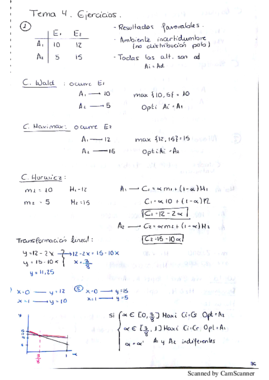 Tema 4. Ejercicios.
①
E₁ E₂
A₁ 10 12
A₂ 5 15
- Resultados favorables.
- Ambiente incertidumbre
(no distribución prob)
- Todas las alt. son
Ai - Ad.
C. Wald: ocurre E₁
A₁ → 10
A₂ → 5
max {10, 5} = 10
Opti Ai = A₁
C. Maximax: ocurre E₂
A₁ → 12
A₂ → 15
max {12, 15} = 15
Opti Ai = A₂
C. Hurwicz:
m₁ = 10 H₁ = 12
m₂ = 5 H₂ = 15
A₁ → C₁ = αm₁ + (1-α)H₁
C₁ = α10 + (1-α)12
C₁ = 12 - 2α
A₂ → C₂ = αm₂ + (1-α)H₂
C₂ = 15 - 10α
Transformación lineal:
y = 12 - 2x
y = 15 - 10x
12 - 2x = 15 - 10x
x = 3/8
y = 11,25
x=0 → y=12
x=1 → y=10
② x=0 → y=15
x=1 → y=5
si
α ∈ [0, 3/8) Maxi Ci = C₂ Opt = A₂
α ∈ (3/8, 1] Maxi Ci = C₁ Opt = A₁
α = α* A₁ y A₂ indiferentes
Scanned by CamScanner